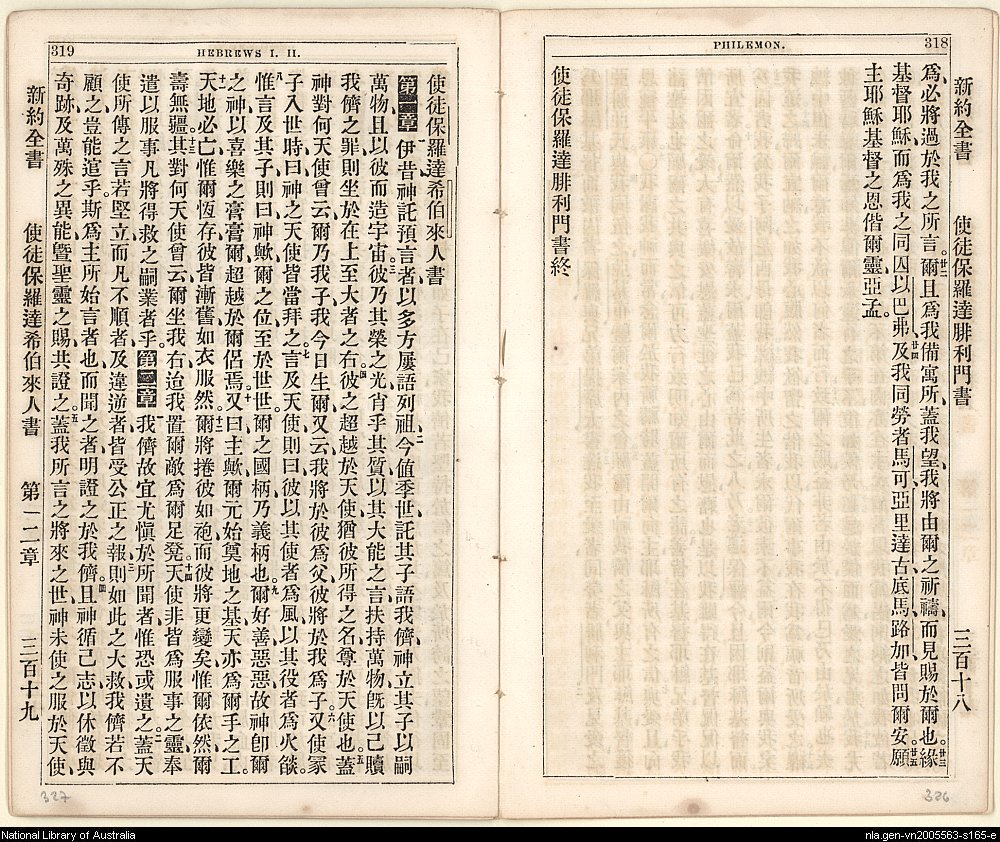 318
PHILEMON.
新約全書 使徒保羅達腓利門書 三百十八
爲、必將過於我之所言。廿二爾且爲我備寓所、蓋我望、我將由爾之祈禱、而見賜於爾也。廿三緣
基督耶穌、而爲我之同囚以巴弗、廿四及我同勞者馬可亞里達古底馬路加、皆問爾安。廿五願
主耶穌基督之恩偕爾靈、亞孟。
使徒保羅達腓利門書終
319
HEBREWS I. II.
使徒保羅達希伯來人書
第一章 一伊昔神託預言者、以多方屢語列祖、二今值季世、託其子語我儕、神立其子以嗣
萬物、且以彼而造宇宙。三彼乃其榮之光、肖乎其質、以其大能之言、扶持萬物、旣以己贖
我儕之罪、則坐於在上至大者之右。四彼之超越於天使、猶彼所得之名、尊於天使也。五蓋
神對何天使曾云、爾乃我子、我今日生爾、又云、我將於彼爲父、彼將於我爲子。六又使冢
子入世時曰、神之天使皆當拜之。七言及天使則曰、彼以其使者爲風、以其役者爲火燄。
八惟言及其子則曰、神歟、爾之位至於世世、爾之國柄、乃義柄也。九爾好善惡惡、故神卽爾
之神、以喜樂之膏膏爾、超越於爾侶焉。十又曰、主歟、爾元始奠地之基、天亦爲爾手之工。
十一天地必亡、惟爾恆存、彼皆漸舊如衣服然、十二爾將捲彼如袍、而彼將更變矣、惟爾依然、爾
壽無疆。十三其對何天使曾云、爾坐我右、迨我置爾敵爲爾足凳。十四天使非皆爲服事之靈、奉
遣以服事凡將得救之嗣業者乎。第二章 一我儕故宜尤愼於所聞者、惟恐或遺之。二蓋天
使所傳之言若堅立、而凡不順者、及違逆者、皆受公正之報、三則如此之大救、我儕若不
顧之、豈能逭乎。斯爲主所始言者也、而聞之者、明證之於我儕。四且神循己志、以休徵與
奇跡、及萬殊之異能、暨聖靈之賜、共證之。五蓋我所言之將來之世、神未使之服於天使
新約全書 使徒保羅達希伯來人書 第一二章 三百十九
326
327
National Library of Australia
nla.gen-vn2005563-s165-e